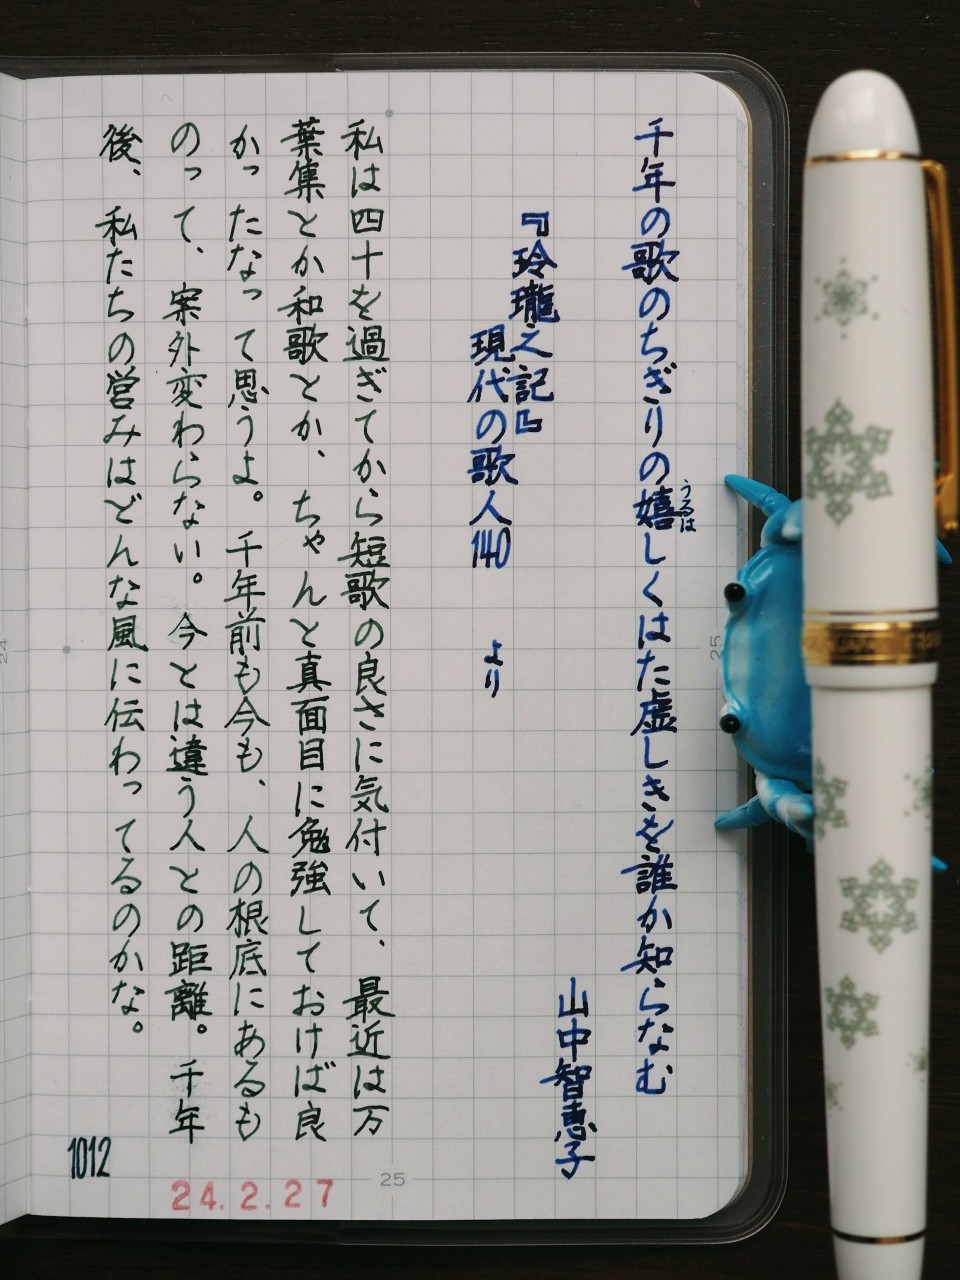 千年の歌のちぎりの嬉しくはた虚しきを誰か知らなむ
うるは
山中智恵子
『玲瓏之記』
現代の歌人140 より
私は四十を過ぎてから短歌の良さに気付いて、最近は万
葉集とか和歌とか、ちゃんと真面目に勉強しておけば良
かったなって思うよ。千年前も今も、人の根底にあるも
のって、案外変わらない。今とは違う人との距離。千年
後、私たちの営みはどんな風に伝わってるのかな。
1012
24.2.27
25
25
24